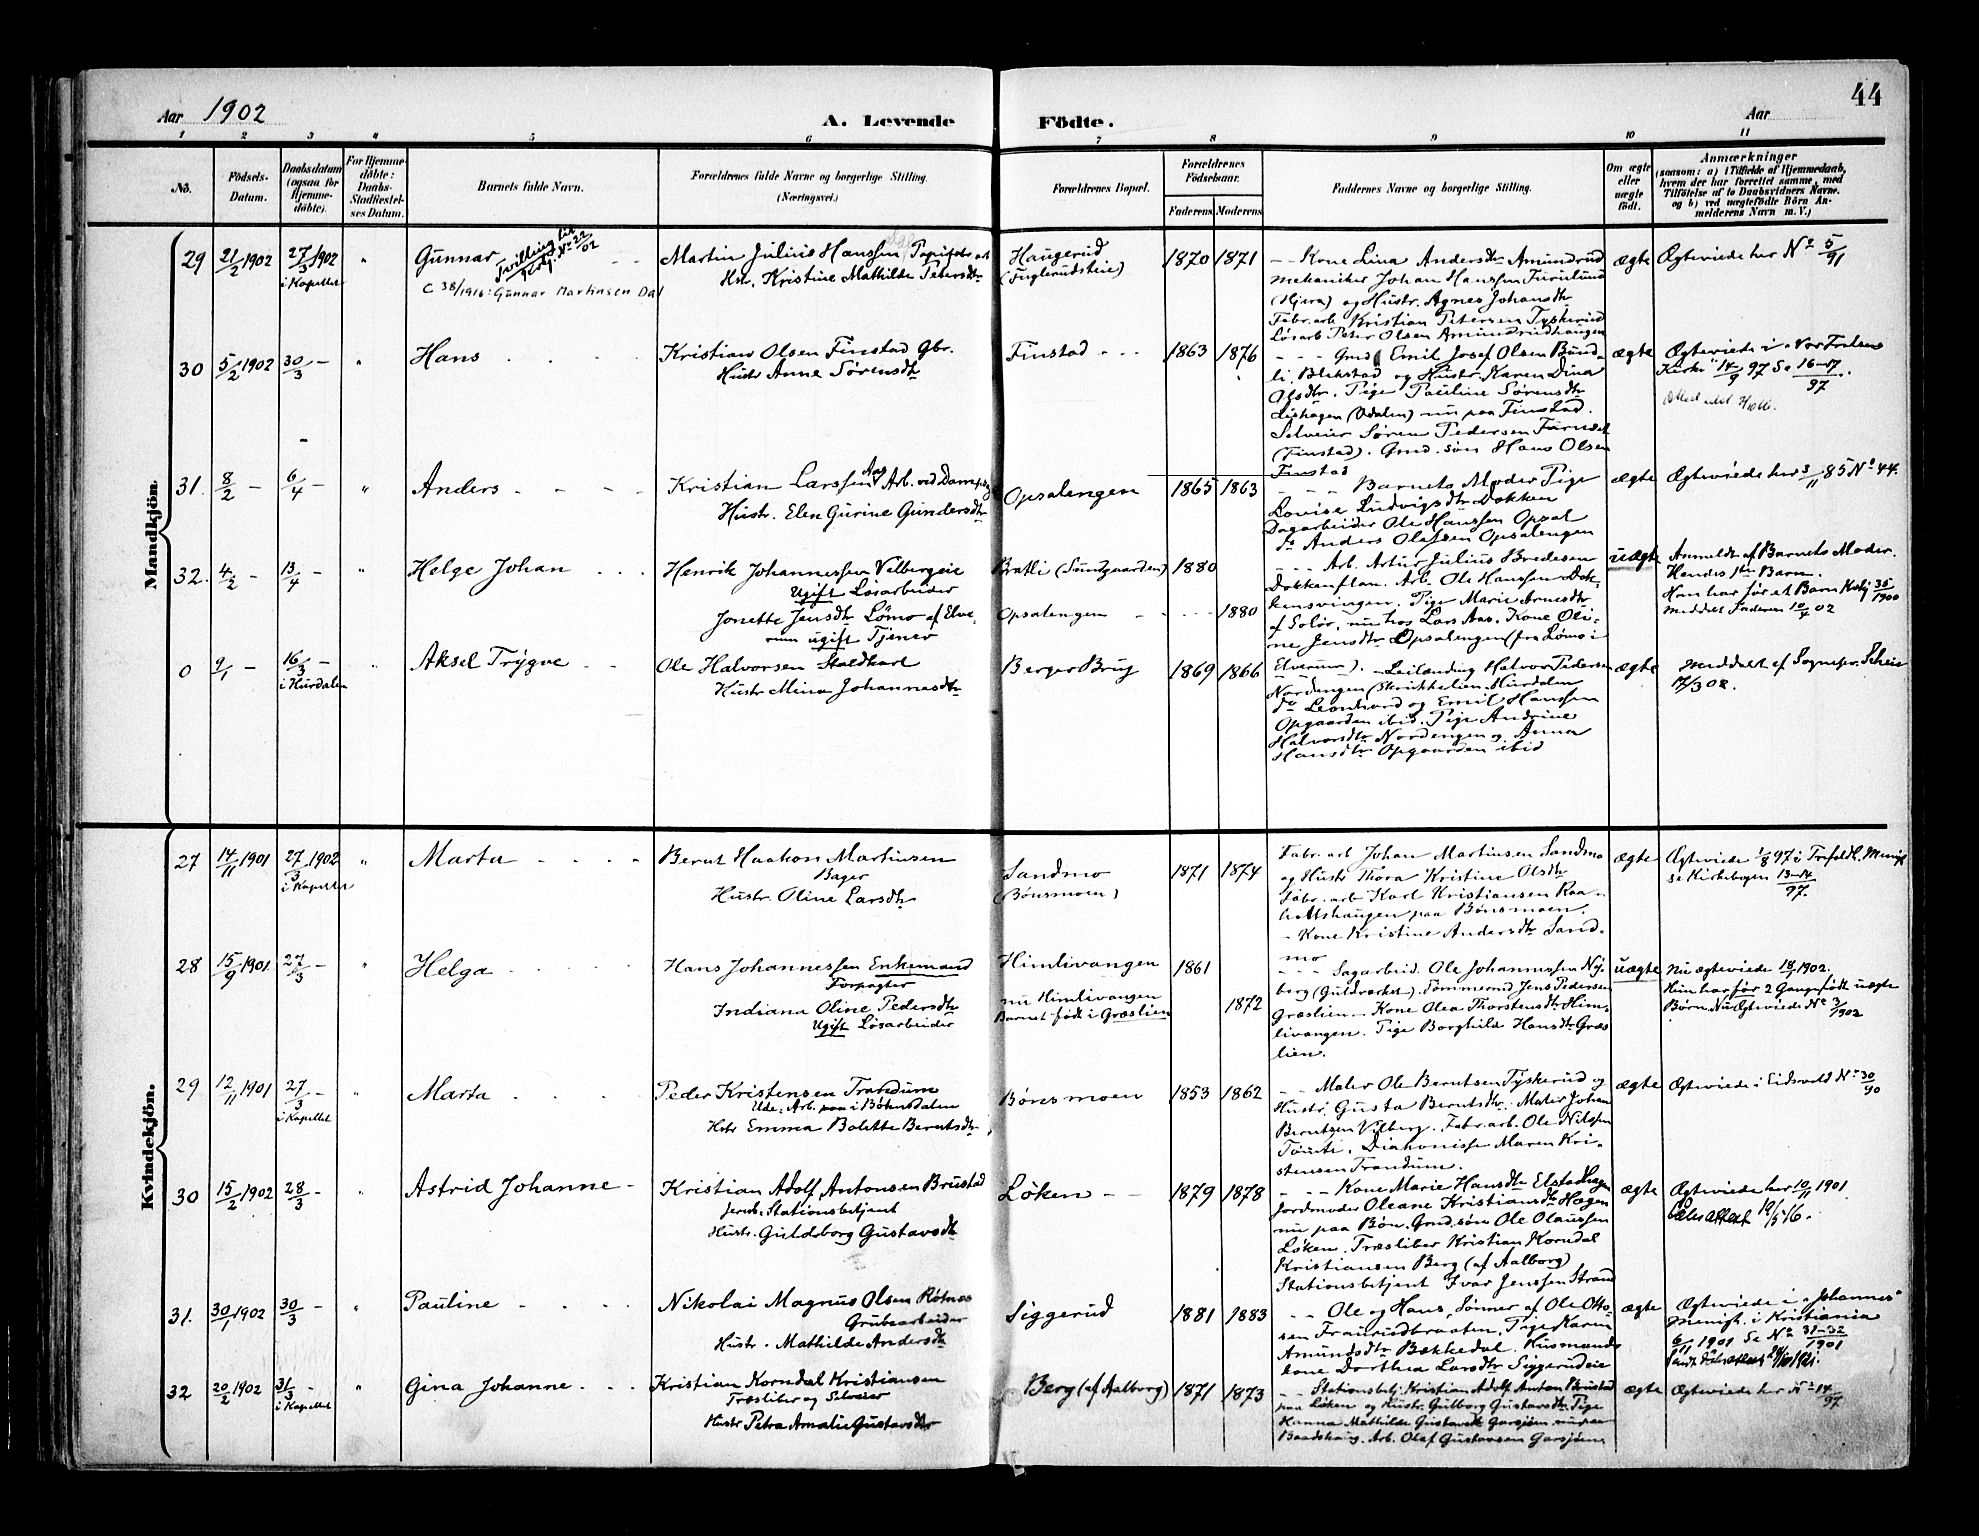 44
Aar 1902
A. Levende
Födte.
Aar
1 2 3 4 5 6 7 8 9 10 11
No.
Födsels-
Datum.
Daabsdatum
(ogsaa for
Hjemme-
döbte).
For Hjemme-
döbte:
Daabs-
Stadfæstel-
ses Datum.
Barnets fulde Navn.
Forældrenes fulde Navne og borgerlige Stilling.
(Næringsvei.)
Forældrenes Bopæl.
Forældrenes
Födselsaar.
Faderens Moderens
Faddernes Navne og borgerlige Stilling.
Om ægte
eller
uægte
födt.
Anmærkninger
(saasom: a) i Tilfælde af Hjemmedaab,
hvem der har forrettet samme, med
Tilföielse af to Daabsvidners Navne,
og b) ved uægtefödte Börn An-
melderens Navn m. V.)
Mandkjön.
29 21/2 1902 27/3 1902 i Kapellet " Gunnar
Tvilling
No 22/02
C 38/1916: Gunnar Martinsen Dal
Martin Julius Hanssen
Hstr. Kristine Mathilde Petersdtr
Haugerud
(Fuglerudsteie)
1870 1871
Kone Lina Andersdtr Amundrud
mekaniker Johan Hanssen Furulund
(Hjera) og Hustr. Agnes Johansdtr
Fabr. arb. Kristian Petersen Tyskerud
Løsarb. Peter Olsen Amundrudhaugen
ægte Ægteviede her No 5/91
30 5/2 1902 30/3 - " Hans
Kristian Olsen Finstad Gbr.
Hustr Anne Sørensdtr
Finstad
1863 1876
Gmd Emil Josef Olsen Bund-
li, Blekstad og Hustr. Karen Dina
Olsdtr. Pige Pauline Sørensdtr
(Odalen) nu paa Finstad.
Selveier Søren Pedersen
(Finstad). Gmd. søn Hans Olsen
Finstad
ægte Ægteviede i Vor Frelsers
Kirke 14/9 97 Se 16-17/97.
31. 8/2 - 6/4 - " Anders
Kristian Larssen Aas Arb. ved
Hustr. Elen Gurine Gundersdtr
Opsalengen
1865 1863
Barnets Moder Pige
Lovise Ludvigsdtr Dokken
Dagarbeider Ole Hanssen Opsal
Do Anders Olafsen Opsalengen
ægte Ægteviede her 3/11 85 No 44.
32. 4/2 - 13/4 - " Helge Johan
Henrik Johannessen Vilbergeie
Ugift Løsarbeider
Jonette Jensdtr Lømo af Elve-
rum ugift Tjener
Bratli (Sundgaarden) 1880
Opsalengen 1880
Arb. Artur Julius Bredesen
Dokkenflan. Arb. Ole Hanssen Dok-
kensvingen. Pige Marie Arnesdtr
af Solør, nu hos Lars Aas. Kone Oli-
ne Jensdtr Opsalengen (fra Lømo i
Elverum).
uægte Anmeldt af Barnets Moder.
Hendes 1ste Barn.
Han har før et Barn Kvkj 35/1900
meddelt Faderen 10/4 02
0 9/1 - 16/3 - i Hurdalen " Aksel Trygve
Ole Halvorsen Staldkarl
Hustr Mina Johannesdtr
Berger Brug
1869 1866
Leilænding Halvor Pedersen
Nordengen (Skrikkelien, Hurdalen
Do Leonhard og Emil Hanssen
Opgaarden ibid. Pige Andrine
Halvorsdtr Nordengen og Anna
Hansdtr Opgaarden ibid
ægte Meddelt af Sognepr. Scheie
17/3 02.
Kvindekjön.
27 14/11 1901 27/3 1902 i Kapellet " Marta
Bernt Haakon Martinsen
Bager
Hustr. Oline Larsdtr
Sandmo
(Bönsmoen)
1871 1874
Fabr. arb Johan Martinsen Sandmo
og Hustr Thora Kristine Olsdtr
Fabr. arb Karl Kristiansen Raa-
holtshaugen paa Bönsmoen.
- Kone Kristine Andersdtr Sand-
mo
ægte Ægteviede 1/8 97 i Trefoldh. Menigh
se Kirkebogen 13-14/97.
28 15/9 1901 27/3 - " Helga
Hans Johannessen Enkemand
Forpagter
Indiana Oline Pedersdtr
Ugift Løsarbeider
Himlivangen
nu Himlivangen
Barnet født i Græslien
1861
1872
Sagarbeid. Ole Johannessen Ny-
berg (Guldværket). Tømmermd Jens Pedersen
Græslien - Kone Olea Thorstensdtr Him-
livangen. Pige Borghild Hansdtr Græs
lien.
uægte Nu ægteviede 18/1 1902.
Hun har før 2 Gange født uægte
Børn. Nu Ægteviede No 3/1902
29 12/11 1901 27/3 - i Kapellet " Marta
Peder Kristensen Trandum
Ude: Arb. paa i Böhnsdalen
Hstr Emma Bolette Berntsdtr
Bönsmoen
1853 1862
Maler Ole Berntsen Tyskerud og
Hustr. Gusta Berntsdtr. Maler Johan
Berntsen Vilberg. Fabr. arb. Ole Nilsen
Tömte. Diakonisse Maren Kri-
stensen Trandum.
ægte Ægteviede i Eidsvold No 30/90
30 15/2 1902 28/3 - " Astrid Johanne
Kristian Adolf Antonsen Brustad
Jernb. Stationsbetjent
Hustr. Guldborg Gustavsdtr
Løken
1879 1878
Kone Marie Hansdtr Elstadhagen
Jordmoder Oleane Kristiansdtr Hagen
nu paa Bön. Gmd. søn Ole Olaussen
Løken. Træsliber Kristian Korndal
Kristiansen Berg (af Aalborg)
Stationsbetjent Ivar Jenssen Strand
ægte Ægteviede her 10/11 1901
19/5 16.
31. 30/1 1902 30/3 - " Pauline
Nikolai Magnus Olsen Rotnes
Grubearbeider
Hustr. Mathilde Andersdtr
Siggerud
1881 1883
Ole og Hans, Sønner af Ole Otto-
sen Fraurudbraaten. Pige Karen
Amundsdtr Bækkedal. Husmands
kone Dorthea Larsdtr Siggerudeie
ægte Ægteviede i "Johannes"
Menigh. i Kristiania
6/11 1901 Se No 31-32/1901
32 20/2 1902 31/3 - i Kapellet " Gina Johanne
Kristian Korndal Kristiansen
Træsliber og Selveier
Hustr Petra Amalie Gustavsdtr
Berg (af Aalborg)
1871 1873
Stationsbetj. Kristian Adolf Anton Brustad
paa Løken og Hustr. Gulborg Gustavsdtr. Pige
Hanna Mathilde Gustavsdtr Garsjøen nu paa
Baadshaug. Arb. Olaf Gustavsen Garsjøen
ægte Ægteviede her No 14/97